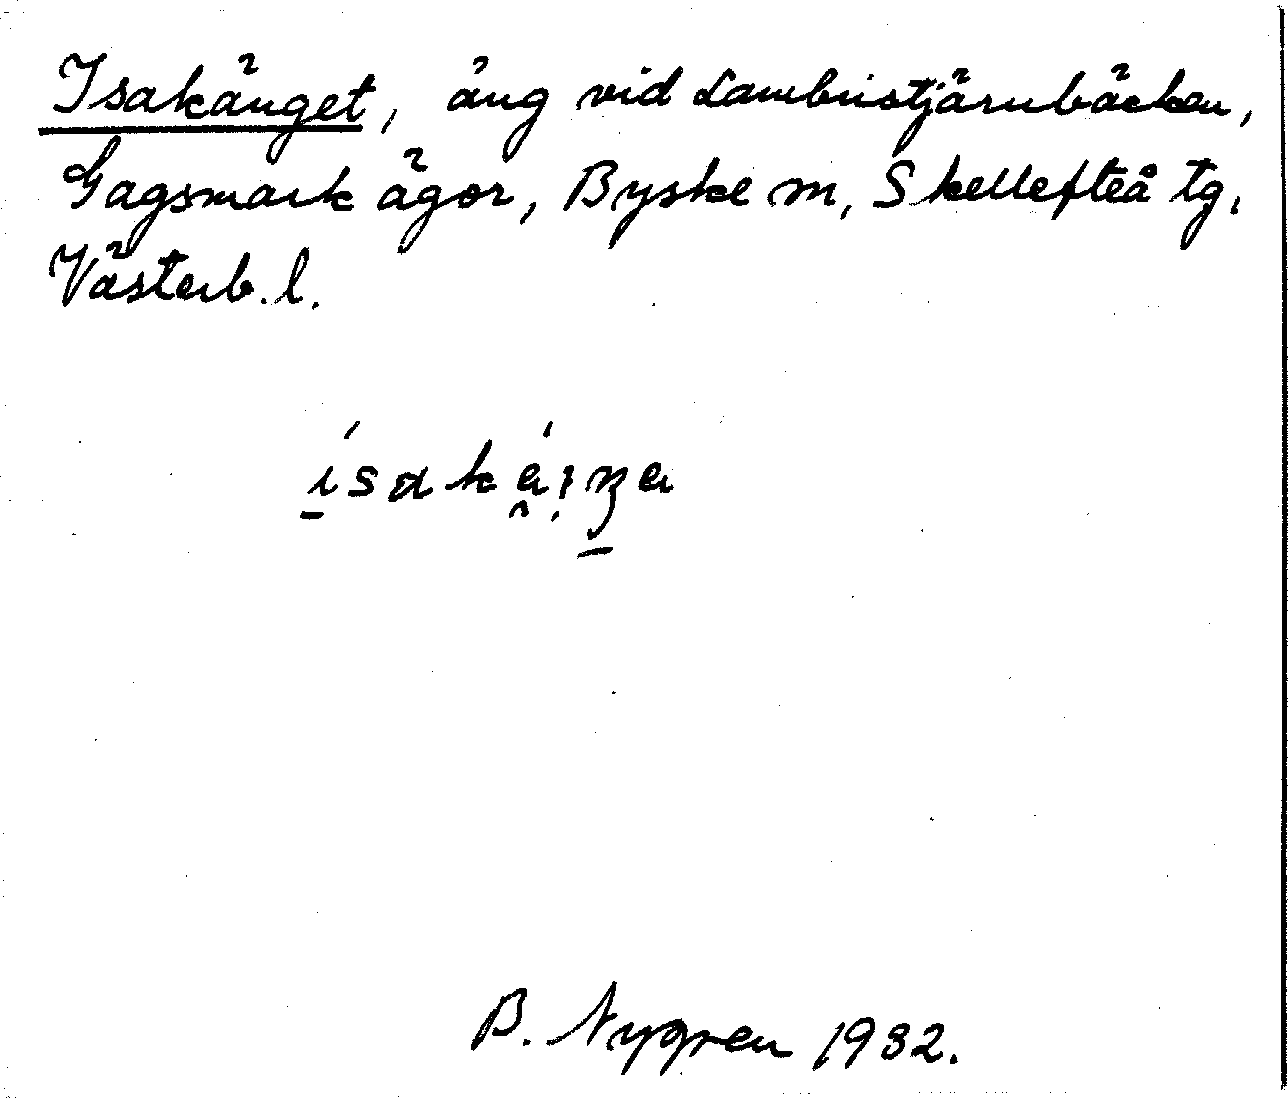 Isakänget, äng vid Lambristjärnbäcken,
Gagsmark ägor, Byske sn, Skellefteå tg,
Västerb. l.
B. Nygren 1932.